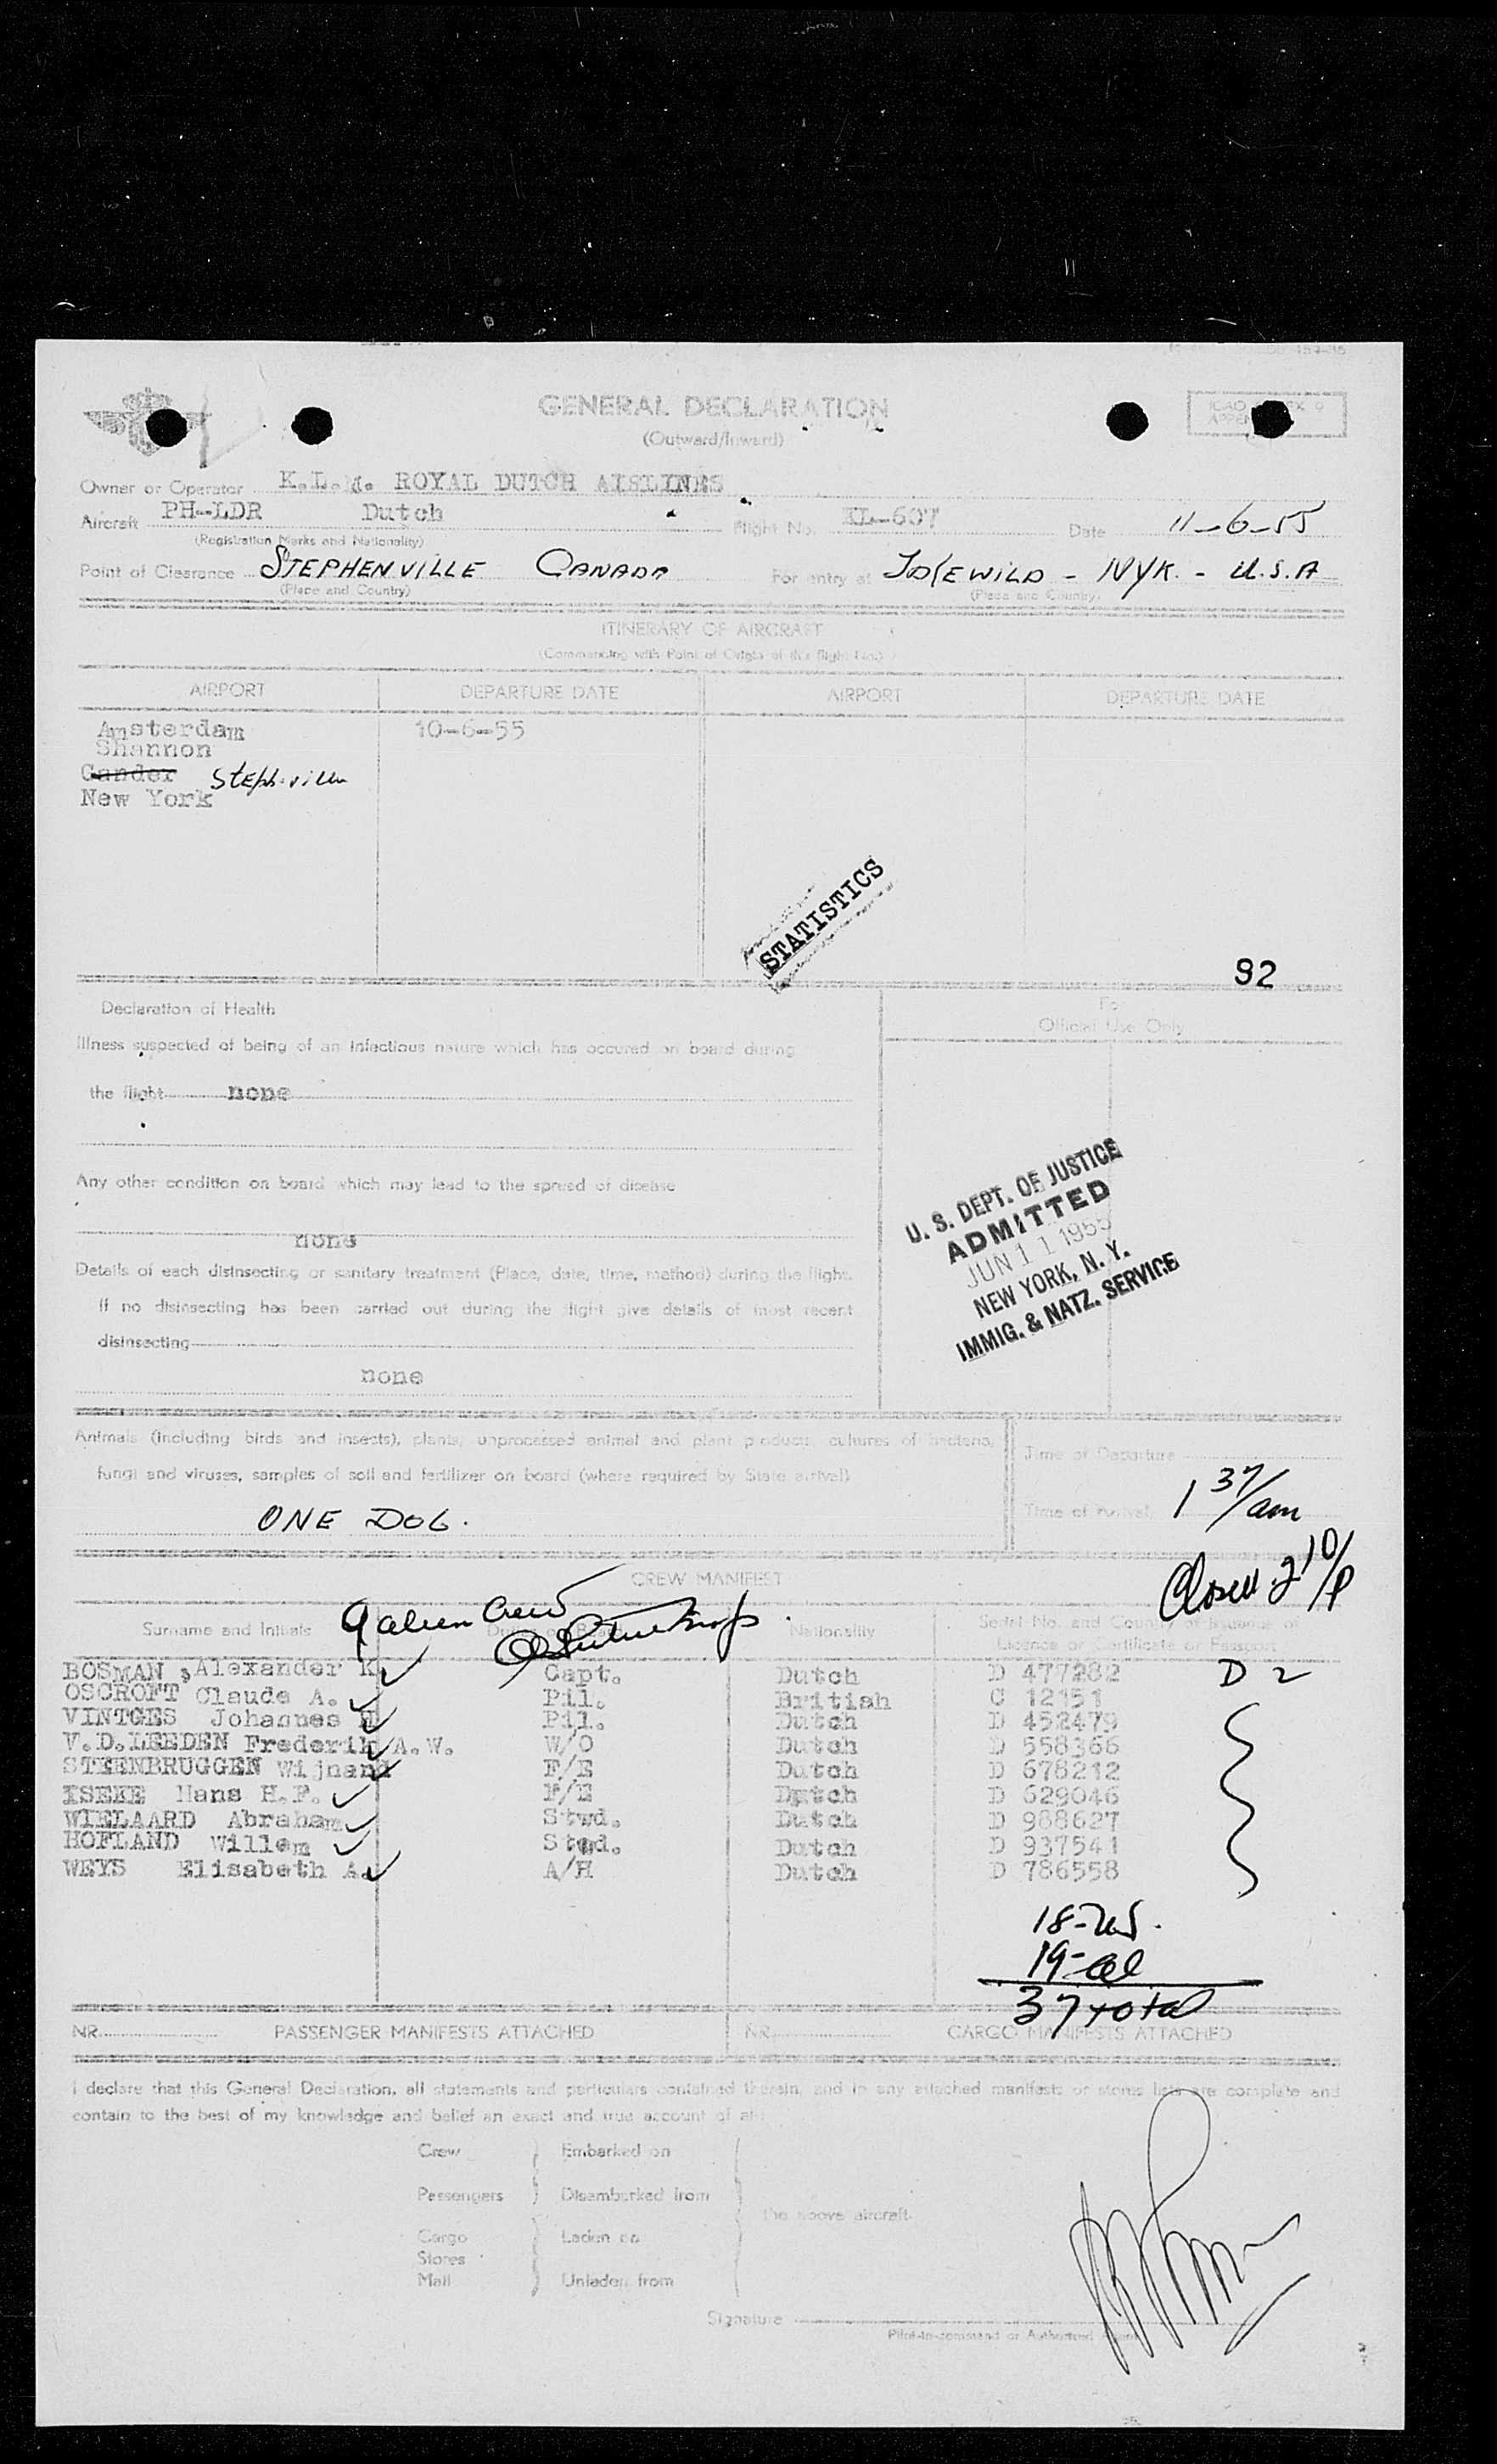 GENERAL DECLARATION
(Outward/Inward)
ICAO
Owner or Operator K.L.M. ROYAL DUTCH AISLINES
Aircraft PH-LDR Dutch Flight No. KL-607 Date 11-6-55
(Registration Marks and Nationality)
Point of Clearance STEPHENVILLE CANADA For entry at IDLEWILD - NYK. - U.S.A
(Place and Country) (Place and Country)
ITINERARY OF AIRCRAFT
(Commencing with Point of Origin of this flight No.)
AIRPORT DEPARTURE DATE AIRPORT DEPARTURE DATE
Amsterdam 10-6-55
Shannon
Gander Steph.ville
New York
STATISTICS
92
Declaration of Health
For
Official Use Only
Illness suspected of being of an infectious nature which has occured on board during
the flight none
Any other condition on board which may lead to the spread of disease
none
Details of each disinsecting or sanitary treatment (Place, date, time, method) during the flight.
If no disinsecting has been carried out during the flight give details of most recent
disinsecting
none
U. S. DEPT. OF JUSTICE
ADMITTED
JUN 11 1955
NEW YORK, N. Y.
IMMIG. & NATZ. SERVICE
Animals (including birds and insects), plants, unprocessed animal and plant products, cultures of bacteria,
fungi and viruses, samples of soil and fertilizer on board (where required by State arrival)
ONE DOG.
Time of Departure
Time of Arrival 1 37/am
Closed 2 10/P
CREW MANIFEST
9 alien crew
Surname and Initials Duties on Board Nationality Serial No. and Country of Issuance of
Licence or Certificate or Passport
BOSMAN , Alexander K. Capt. Dutch D 477282 D 2
OSCROFT Claude A. Pil. British C 12151
VINTGES Johannes H Pil. Dutch D 452479
V.D.LEEDEN Frederik A.W. W/O Dutch D 558366
STEENBRUGGEN Wijnand F/E Dutch D 678212
ISEKE Hans H.F. F/E Dutch D 629046
WIELAARD Abraham Stwd. Dutch D 988627
HOFLAND Willem Stwd. Dutch D 937541
WEYS Elisabeth A. A/H Dutch D 786558
18-US.
19-al
37 total
NR. PASSENGER MANIFESTS ATTACHED NR. CARGO MANIFESTS ATTACHED
I declare that this General Declaration, all statements and particulars contained therein, and in any attached manifests or stores lists are complete and
contain to the best of my knowledge and belief an exact and true account of all
Crew Embarked on
Passengers Disembarked from
the above aircraft.
Cargo Laden on
Stores
Mail Unladen from
Signature
Pilot-in-command or Authorized Agent